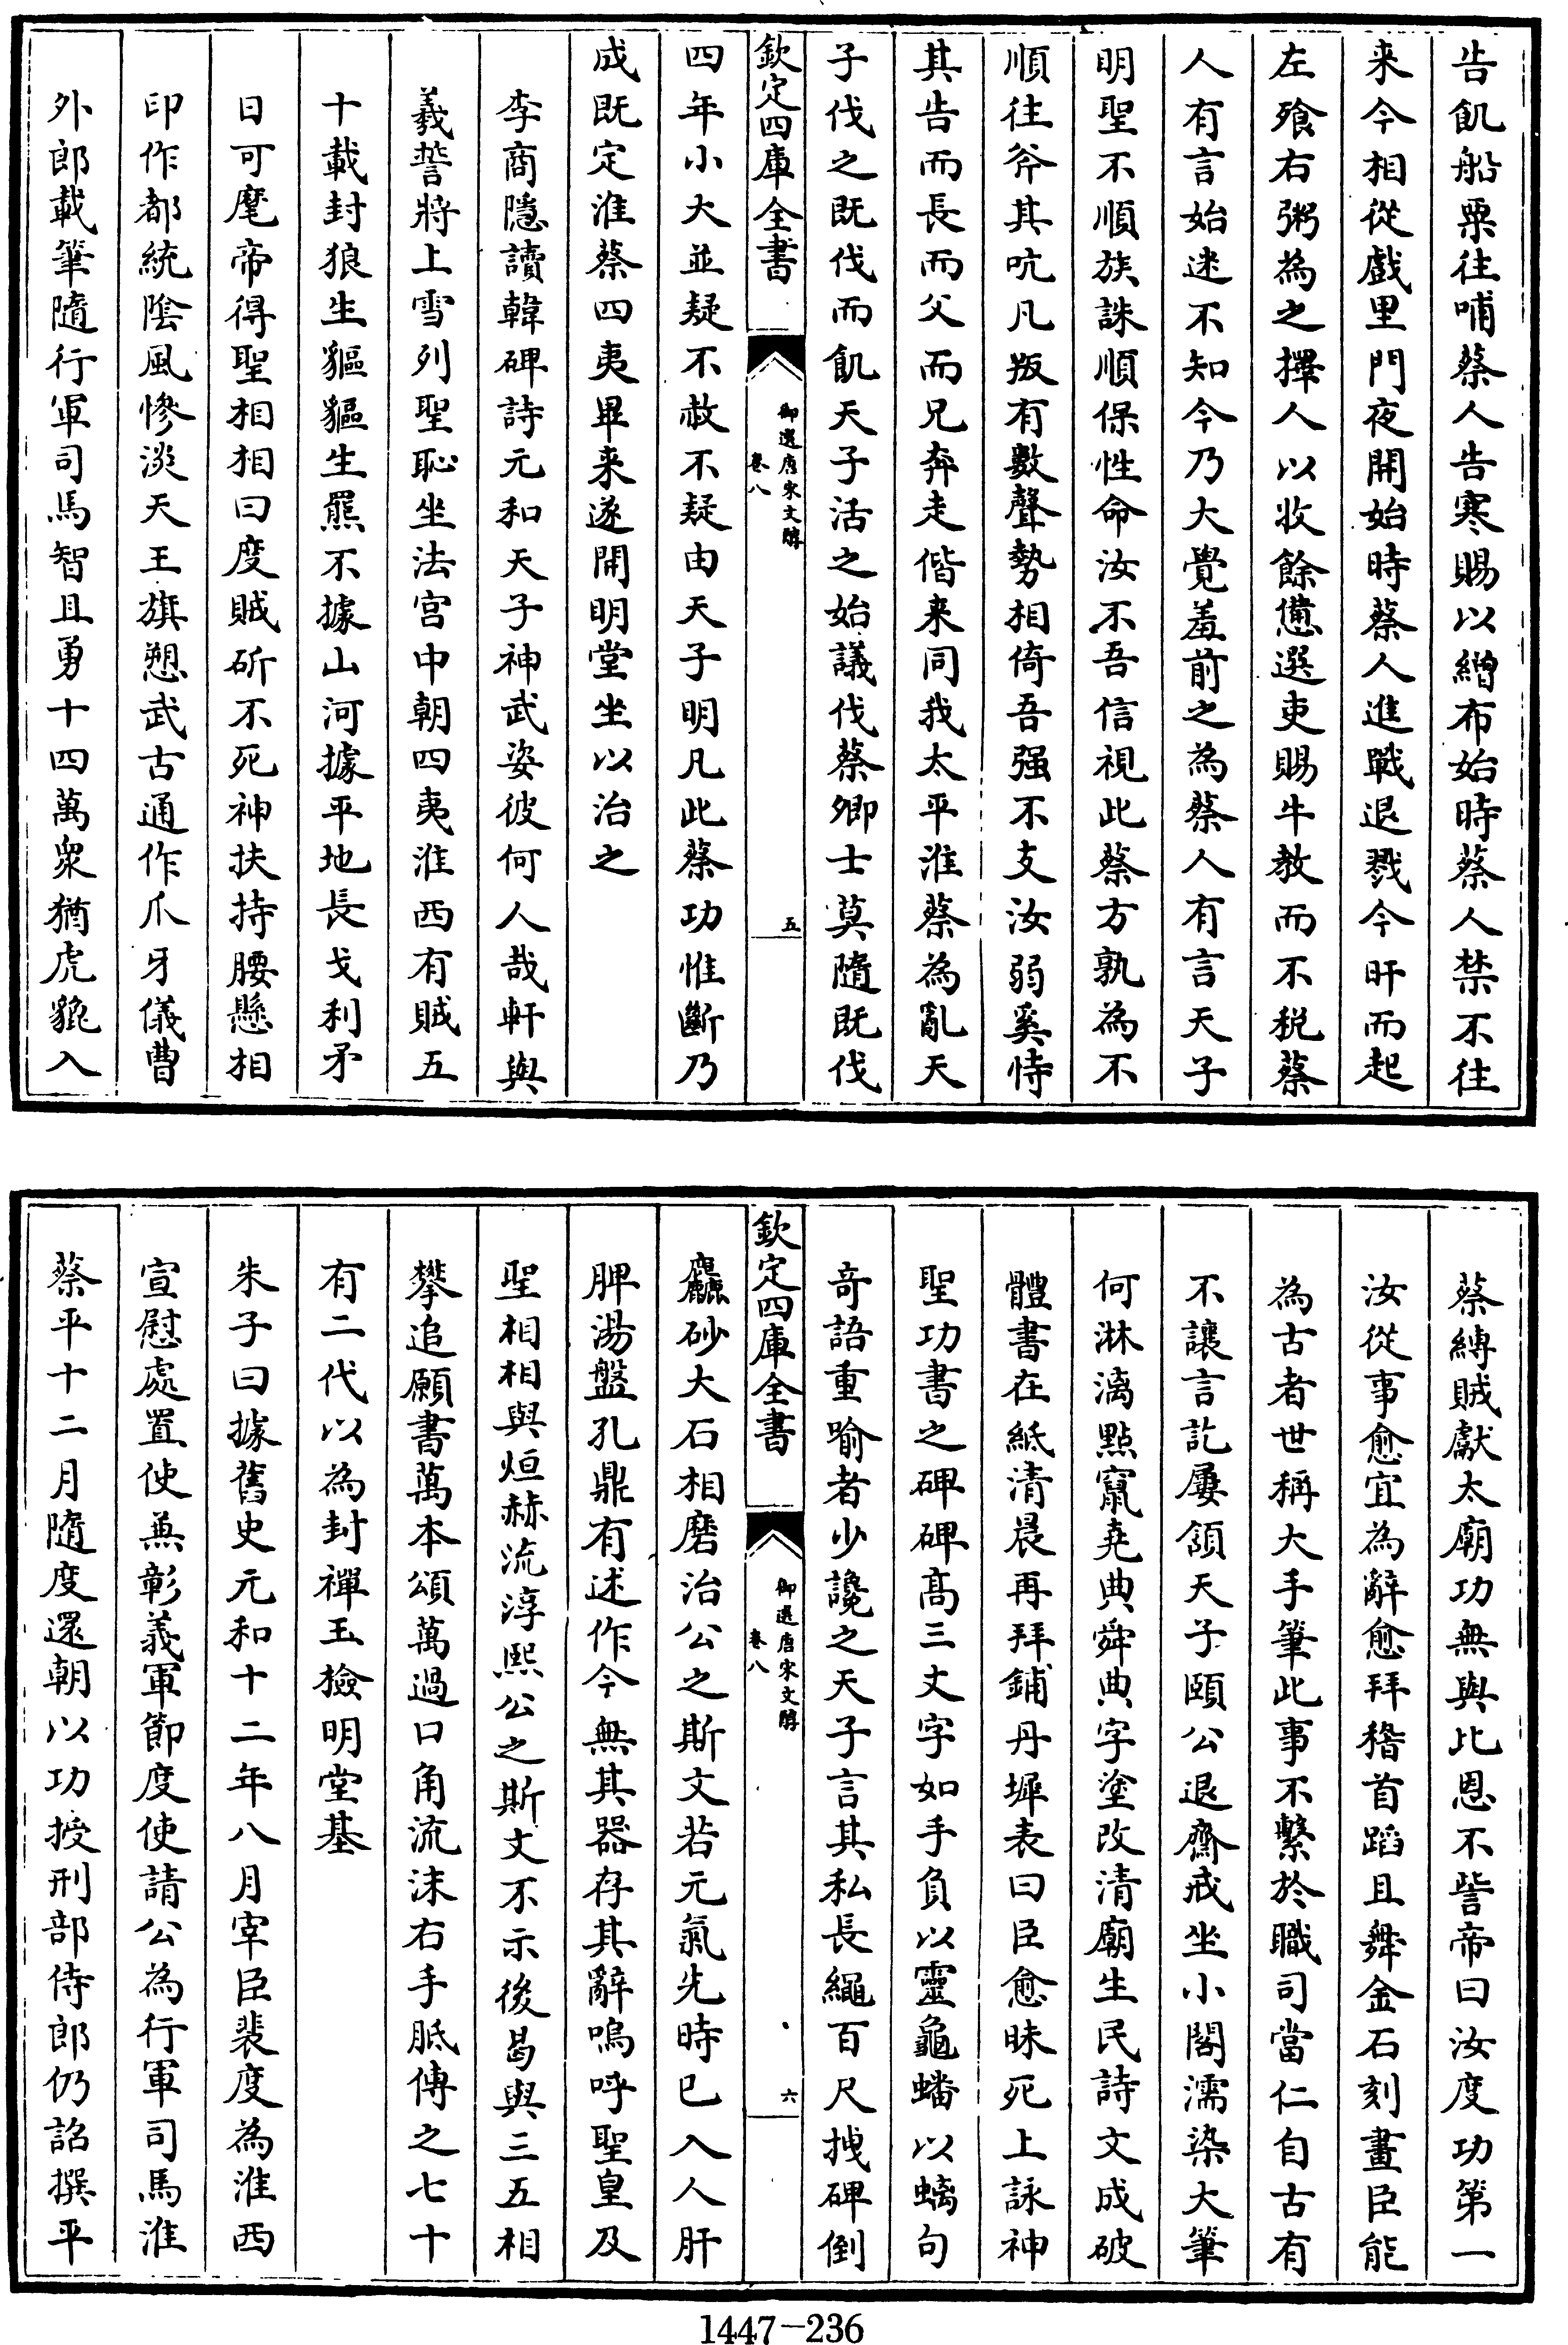 告飢船粟往哺蔡人告寒賜以繒布始時蔡人禁不往
来今相從戲里門夜開始時蔡人進戰退戮今旰而起
左飱右粥為之擇人以收餘憊選吏賜牛教而不税蔡
人有言始迷不知今乃大覺羞前之為蔡人有言天子
明聖不順族誅順保性命汝不吾信視此蔡方孰為不
順往斧其吭凡叛有數聲勢相倚吾强不支汝弱奚恃
其告而長而父而兄奔走偕来同我太平淮蔡為亂天
子伐之既伐而飢天子活之始議伐蔡卿士莫隨既伐
欽定四庫全書
御選唐宋文醇
卷八
五
四年小大並疑不赦不疑由天子明凡此蔡功惟斷乃
成既定淮蔡四夷畢来遂開明堂坐以治之
李商隱讀韓碑詩元和天子神武姿彼何人哉軒與
羲誓將上雪列聖恥坐法宫中朝四夷淮西有賊五
十載封狼生貙貙生羆不據山河據平地長戈利矛
日可麾帝得聖相相曰度賊斫不死神扶持腰懸相
印作都統陰風慘淡天王旗愬武古通作爪牙儀曹
外郎載筆隨行軍司馬智且勇十四萬衆猶虎貔入
蔡縛賊獻太廟功無與比恩不訾帝曰汝度功第一
汝從事愈宜為辭愈拜稽首蹈且舞金石刻畫臣能
為古者世稱大手筆此事不繫於職司當仁自古有
不讓言訖屢頷天子頤公退齋戒坐小閣濡染大筆
何淋漓點竄堯典舜典字塗改清廟生民詩文成破
體書在紙清晨再拜鋪丹墀表曰臣愈昧死上詠神
聖功書之碑碑高三丈字如手負以靈龜蟠以螭句
奇語重喻者少讒之天子言其私長繩百尺拽碑倒
欽定四庫全書
御選唐宋文醇
卷八
六
麤砂大石相磨治公之斯文若元氣先時已入人肝
脾湯盤孔鼎有述作今無其器存其辭嗚呼聖皇及
聖相相與烜赫流淳熙公之斯文不示後曷與三五相
攀追願書萬本頌萬過口角流沫右手胝傳之七十
有二代以為封禪玉檢明堂基
朱子曰據舊史元和十二年八月宰臣裴度為淮西
宣慰處置使無彰義軍節度使請公為行軍司馬淮
蔡平十二月隨度還朝以功授刑部侍郎仍詔撰平
1447-236